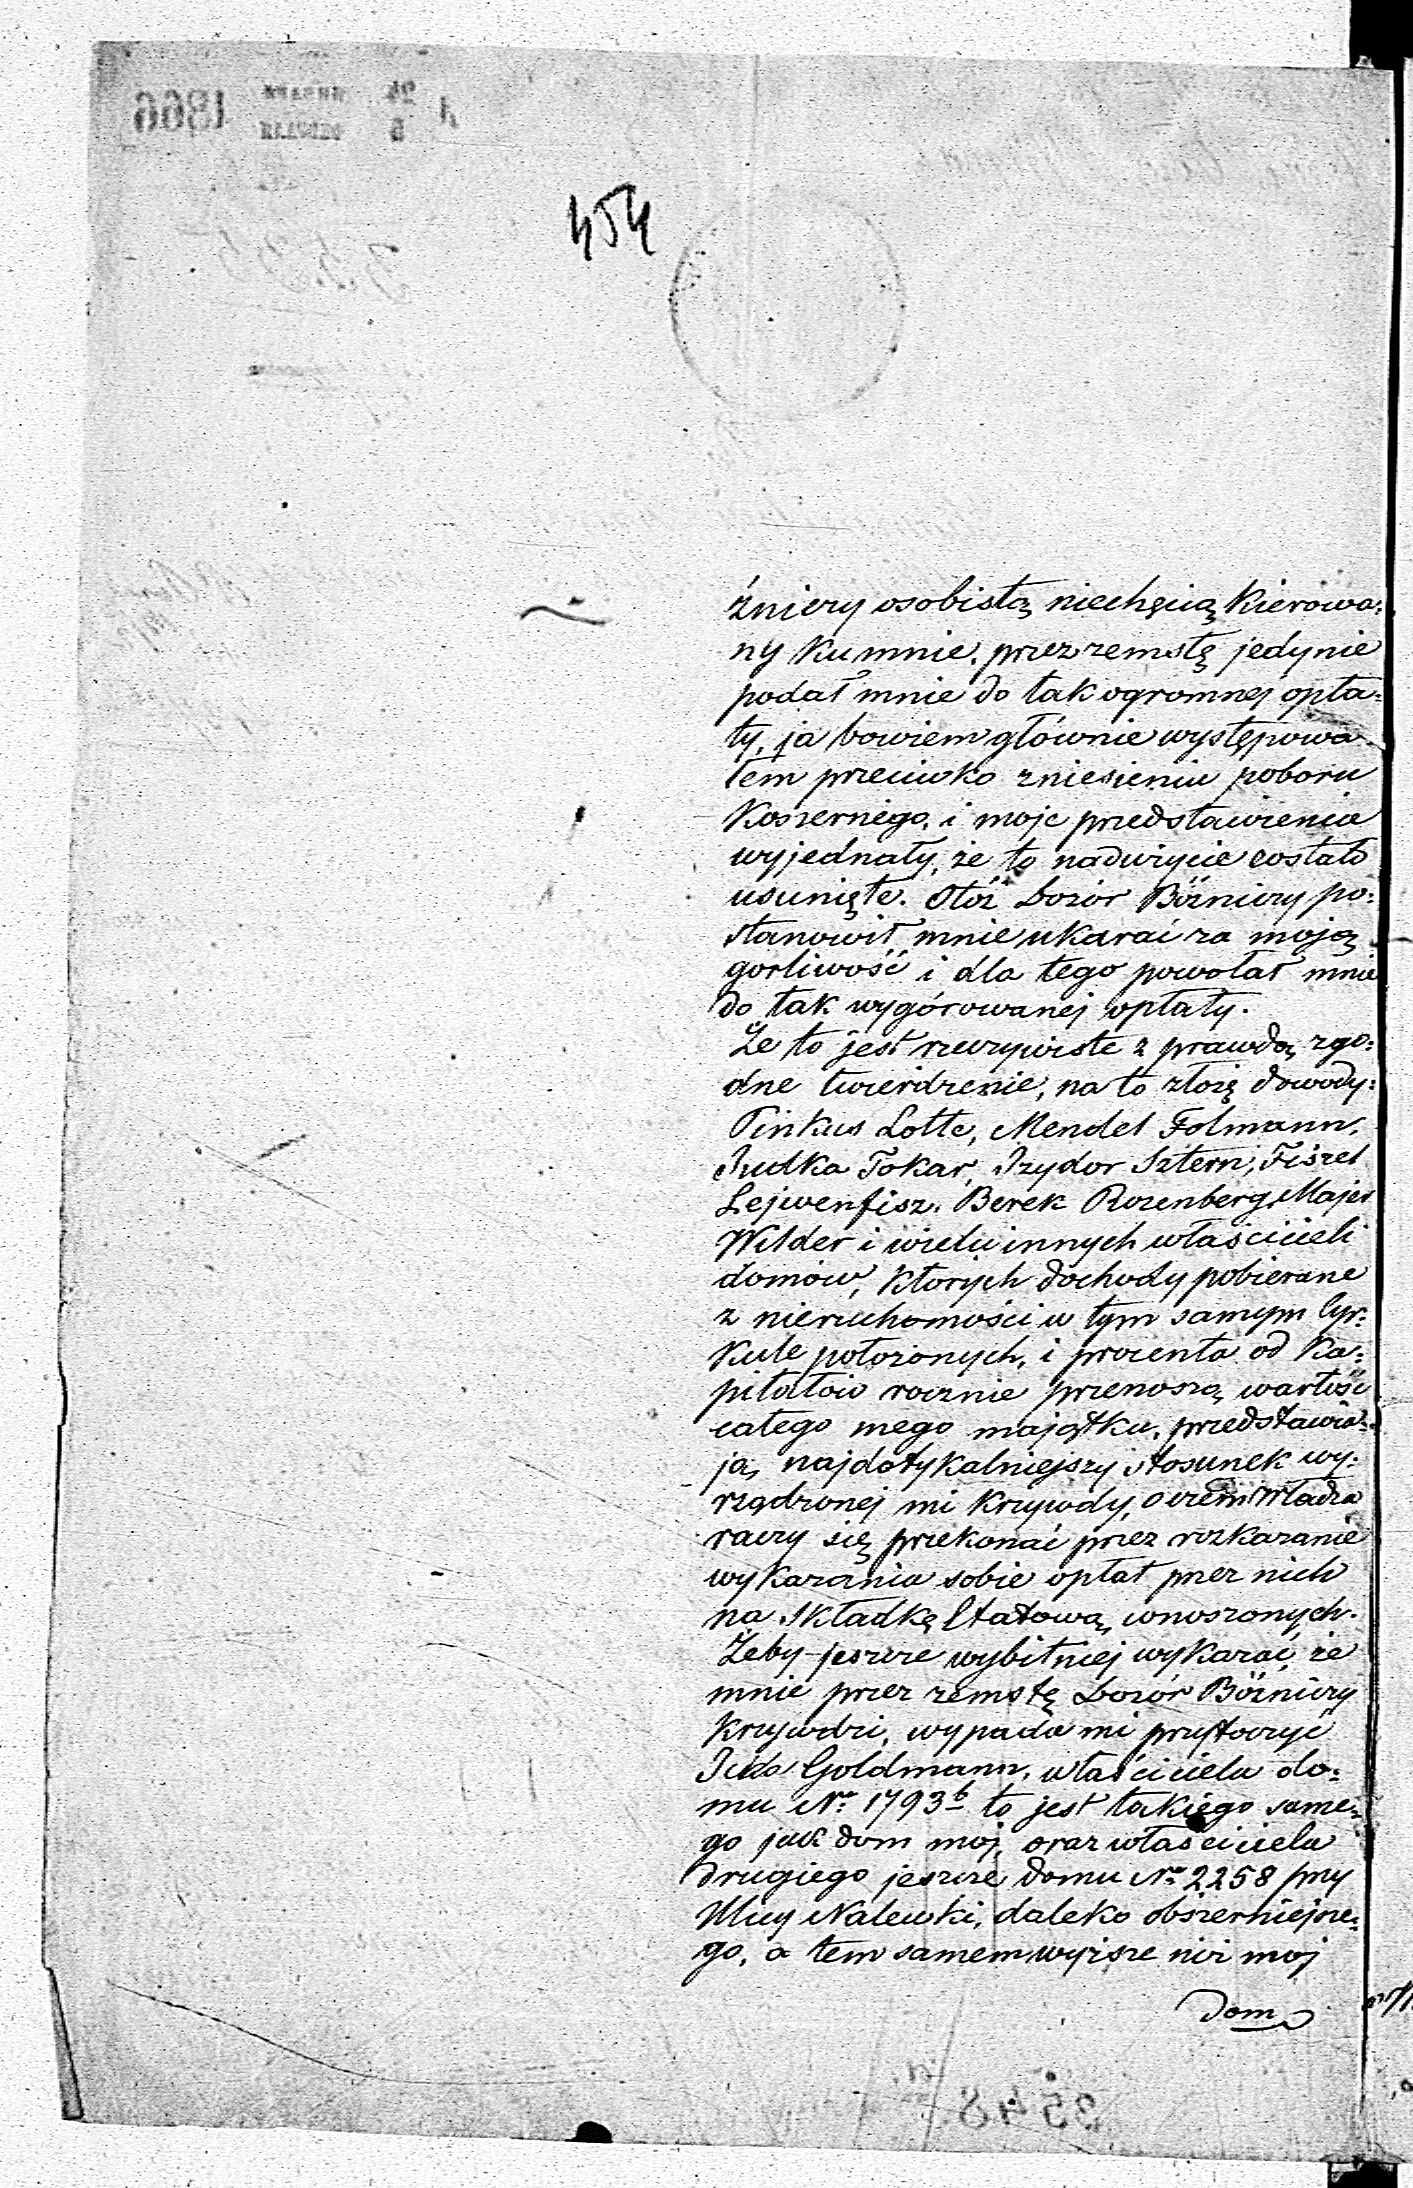 454
źniczy osobistą niechęcią kierowa:
ny ku mnie, przez zemstę jedynie
podał mnie do tak ogromnej opła:
ty, ja bowiem głównie występowa
łem przeciwko zniesieniu poboru
Koszernego, i moje przedstawienia
wyjednały, że to nadużycie zostało
usunięte. Otóż Dozór Bóźniczy po:
stanowił mnie ukarać za moją
gorliwość i dla tego powołał mnie
do tak wygórowanej opłaty.
Że to jest rzeczywiste z prawdą zgo:
dne twierdzenie, na to złożę dowody:
Pinkus Lotte, Mendel Folmann,
Judka Tokar, Izydor Sztern, Fiszel
Lejwenfisz, Berek Rozenberg, Majer
Wilder i wielu innych właścicieli
domów, których dochody pobierane
z nieruchomości w tym samym Cyr:
kule położonych, i procenta od Ka:
pitałów rocznie przenoszą wartość
całego mego majątku, przedstawia:
ją najdotykalniejszy stosunek wy:
rządzonej mi krzywdy, o czem Władza
raczy się przekonać przez rozkazanie
wykazania sobie opłat przez nich
na Składkę Etatową wnoszonych.
Żeby jeszcze wybitniej wykazać, że
mnie przez zemstę Dozór Bóźniczy
krzywdzi, wypada mi przytoczyć
Goldmann, właściciela do:
mu No 1793b to jest takiego same:
go jak dom mój, oraz właściciela
drugiego jeszcze domu No 2258 przy
Ulicy Nalewki, daleko obszerniejsze:
go, a tem samem wyższe niż mój
Dom